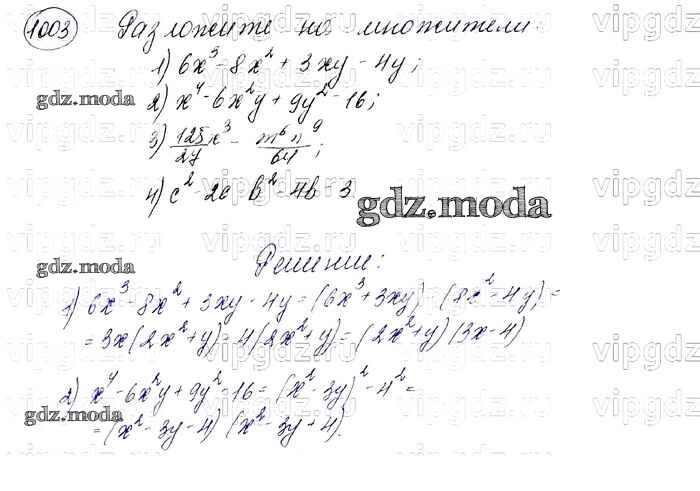 1003 Разложите на множители:
1) 6x³ - 8x² + 3xy - 4y;
gdz.moda
2) x⁴ - 6x²y + 9y² - 16;
3) 125/27 x³ - m⁶n⁹/64;
4) c² - 2c - b² - 4b - 3
gdz.moda
gdz.moda
Решение:
1) 6x³ - 8x² + 3xy - 4y = (6x³ + 3xy) - (8x² - 4y) =
= 3x(2x² + y) = 4(2x² + y) = (2x² + y)(3x - 4)
2) x⁴ - 6x²y + 9y² - 16 = (x² - 3y)² - 4² =
gdz.moda
= (x² - 3y - 4)(x² - 3y + 4).
vipgdz